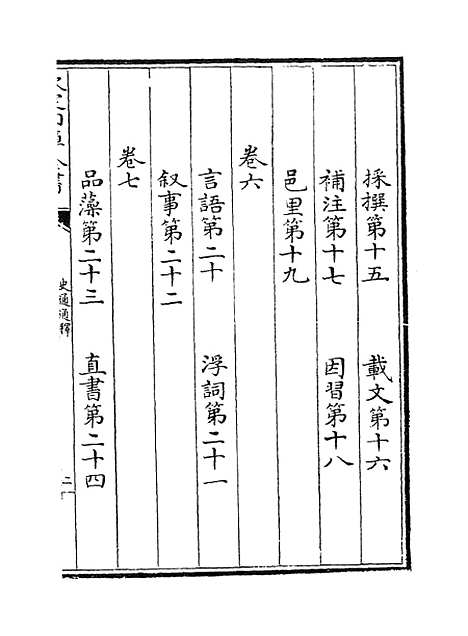 採撰第十五 載文第十六
補注第十七 因習第十八
邑里第十九
卷六
言語第二十 浮詞第二十一
叙事第二十二
卷七
品藻第二十三 直書第二十四
史通通釋
二